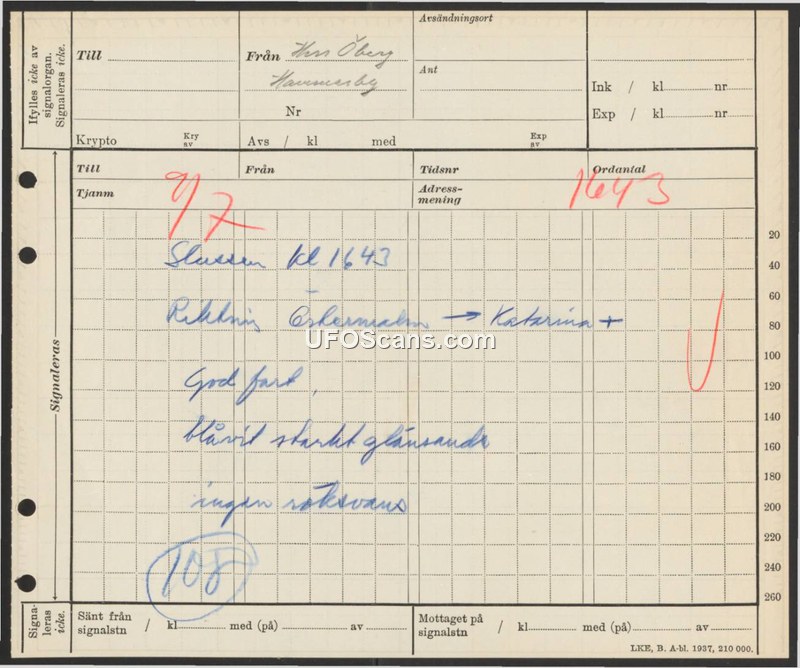 Ifylles icke av
signalorgan.
Signaleras icke.
Till
Från Herr Öberg
Hammarby
Nr
Avsändningsort
Ant
Ink / kl nr
Exp / kl nr
Krypto Kry av
Avs / kl med Exp av
Till Från Tidsnr Ordantal
Tjanm Adress-
mening
9/7 1643
Slussen kl 1643
Riktning Östermalm → Katarina +
God fart,
blåvit starkt glänsande
ingen röksvans
108
Signaleras
20
40
60
80
100
120
140
160
180
200
220
240
260
UFOScans.com
Signa-
leras
icke.
Sänt från
signalstn / kl med (på) av
Mottaget på
signalstn / kl med (på) av
LKE, B. A-bl. 1937, 210 000.